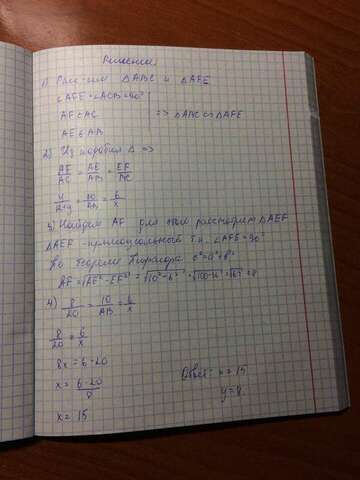 Решение
1) Рас-им ΔABC и ΔAFE
∠AFE = ∠ACB = 90°
AF ∈ AC => ΔABC ∾ ΔAFE
AE ∈ AB
2) Из подобия Δ =>
AF/AC = AE/AB = EF/BC
10/AB = 6/x
3) Найдем AF для этого рассмотрим ΔAEF
ΔAEF - прямоугольный т.к. ∠AFE = 90°
По теореме Пифагора c² = a² + b²
AF = √(AE² - EF²) = √(10² - 6²) = √(100-36) = √64 = 8
4) 8/20 = 10/AB = 6/x
8/20 = 6/x
8x = 6·20
x = 6·20/8
x = 15
Ответ: x = 15
y = 8